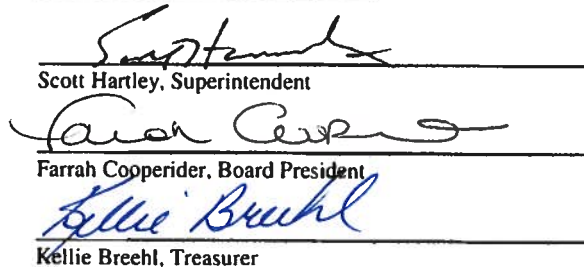 Scott Hartley, Superintendent
Farah Cooperider
Farrah Cooperider, Board President
Kellie Breehl
Kellie Breehl, Treasurer